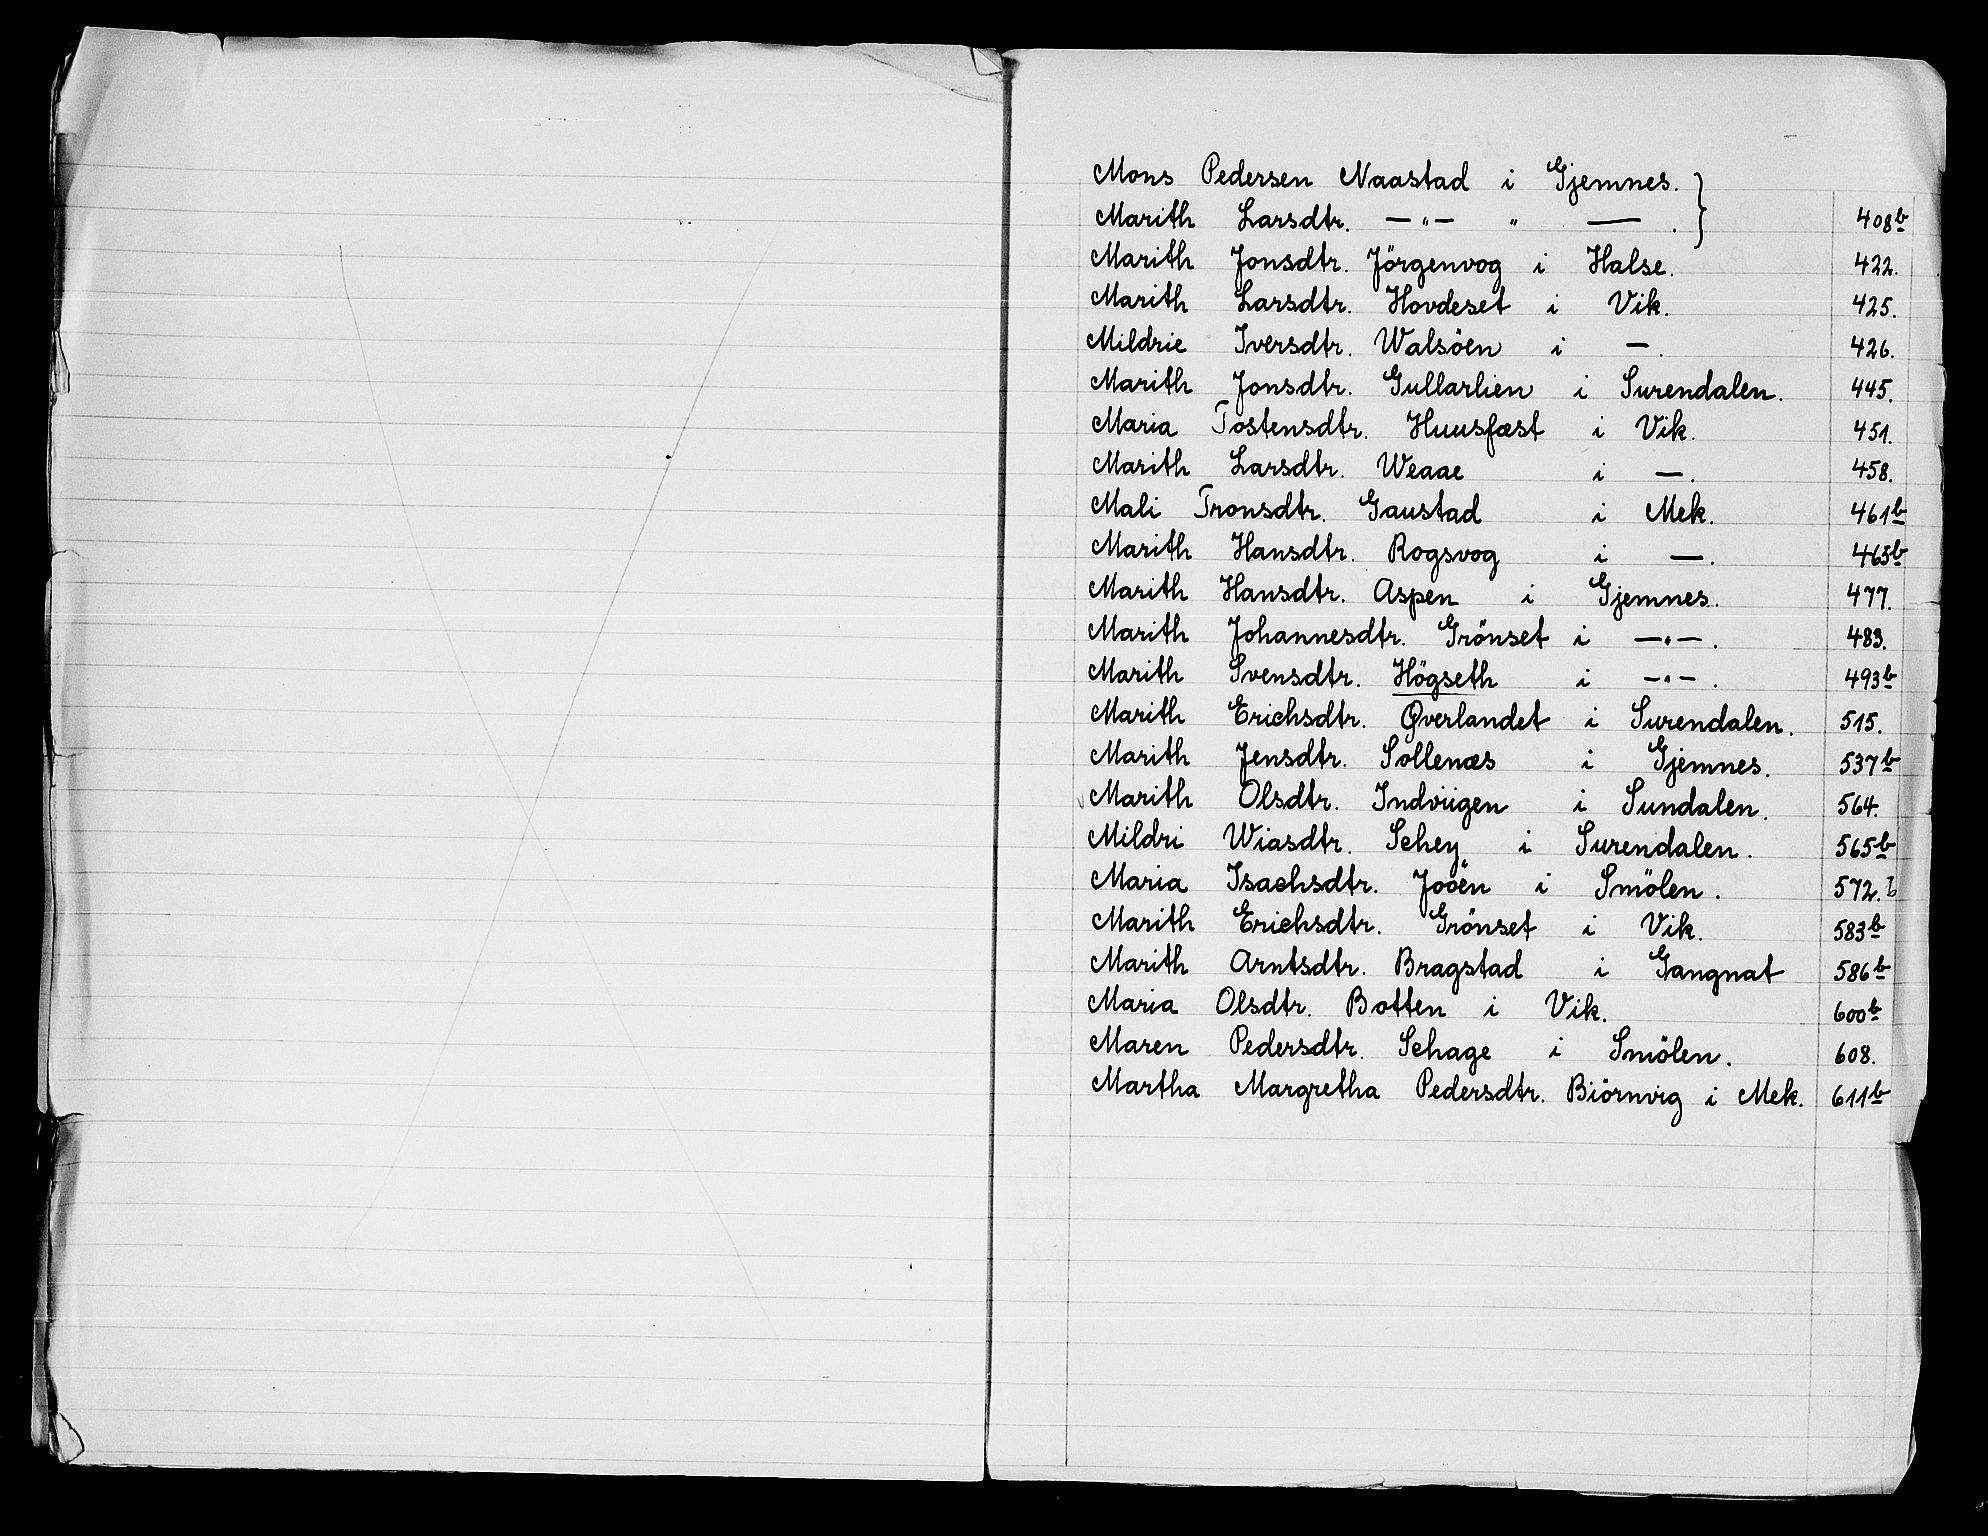 Mons Pedersen Naastad i Gjemnes. }
Marith Larsdtr. —"— " — . } 408b
Marith Jonsdtr. Jörgenvog i Halse. 422.
Marith Larsdtr. Hovdeset i Vik. 425.
Mildrie Iversdtr. Walsöen i —. 426.
Marith Jonsdtr. Gullarlien i Surendalen. 445.
Maria Tostensdtr. Huusfæst i Vik. 451.
Marith Larsdtr. Weaae i —. 458.
Mali Tronsdtr. Gaustad i Mek. 461b
Marith Hansdtr. Rogsvog i —. 465b
Marith Hansdtr. Aspen i Gjemnes. 477.
Marith Johannesdtr. Grönset i —"—. 483.
Marith Svensdtr. Högseth i —"—. 493b
Marith Erichsdtr. Øverlandet i Surendalen. 515.
Marith Jensdtr. Sollenæs i Gjemnes. 537b
Marith Olsdtr. Indviigen i Sundalen. 564.
Mildri Wiasdtr. Schey i Surendalen. 565b
Maria Isachsdtr. Jooën i Smölen. 572.b
Marith Erichsdtr. Grönset i Vik. 583b
Marith Arntsdtr. Bragstad i Gangnat 586b
Maria Olsdtr. Botten i Vik. 600b
Maren Pedersdtr. Schage i Smölen. 608.
Martha Margretha Pedersdtr. Biörnvig i Mek. 611b